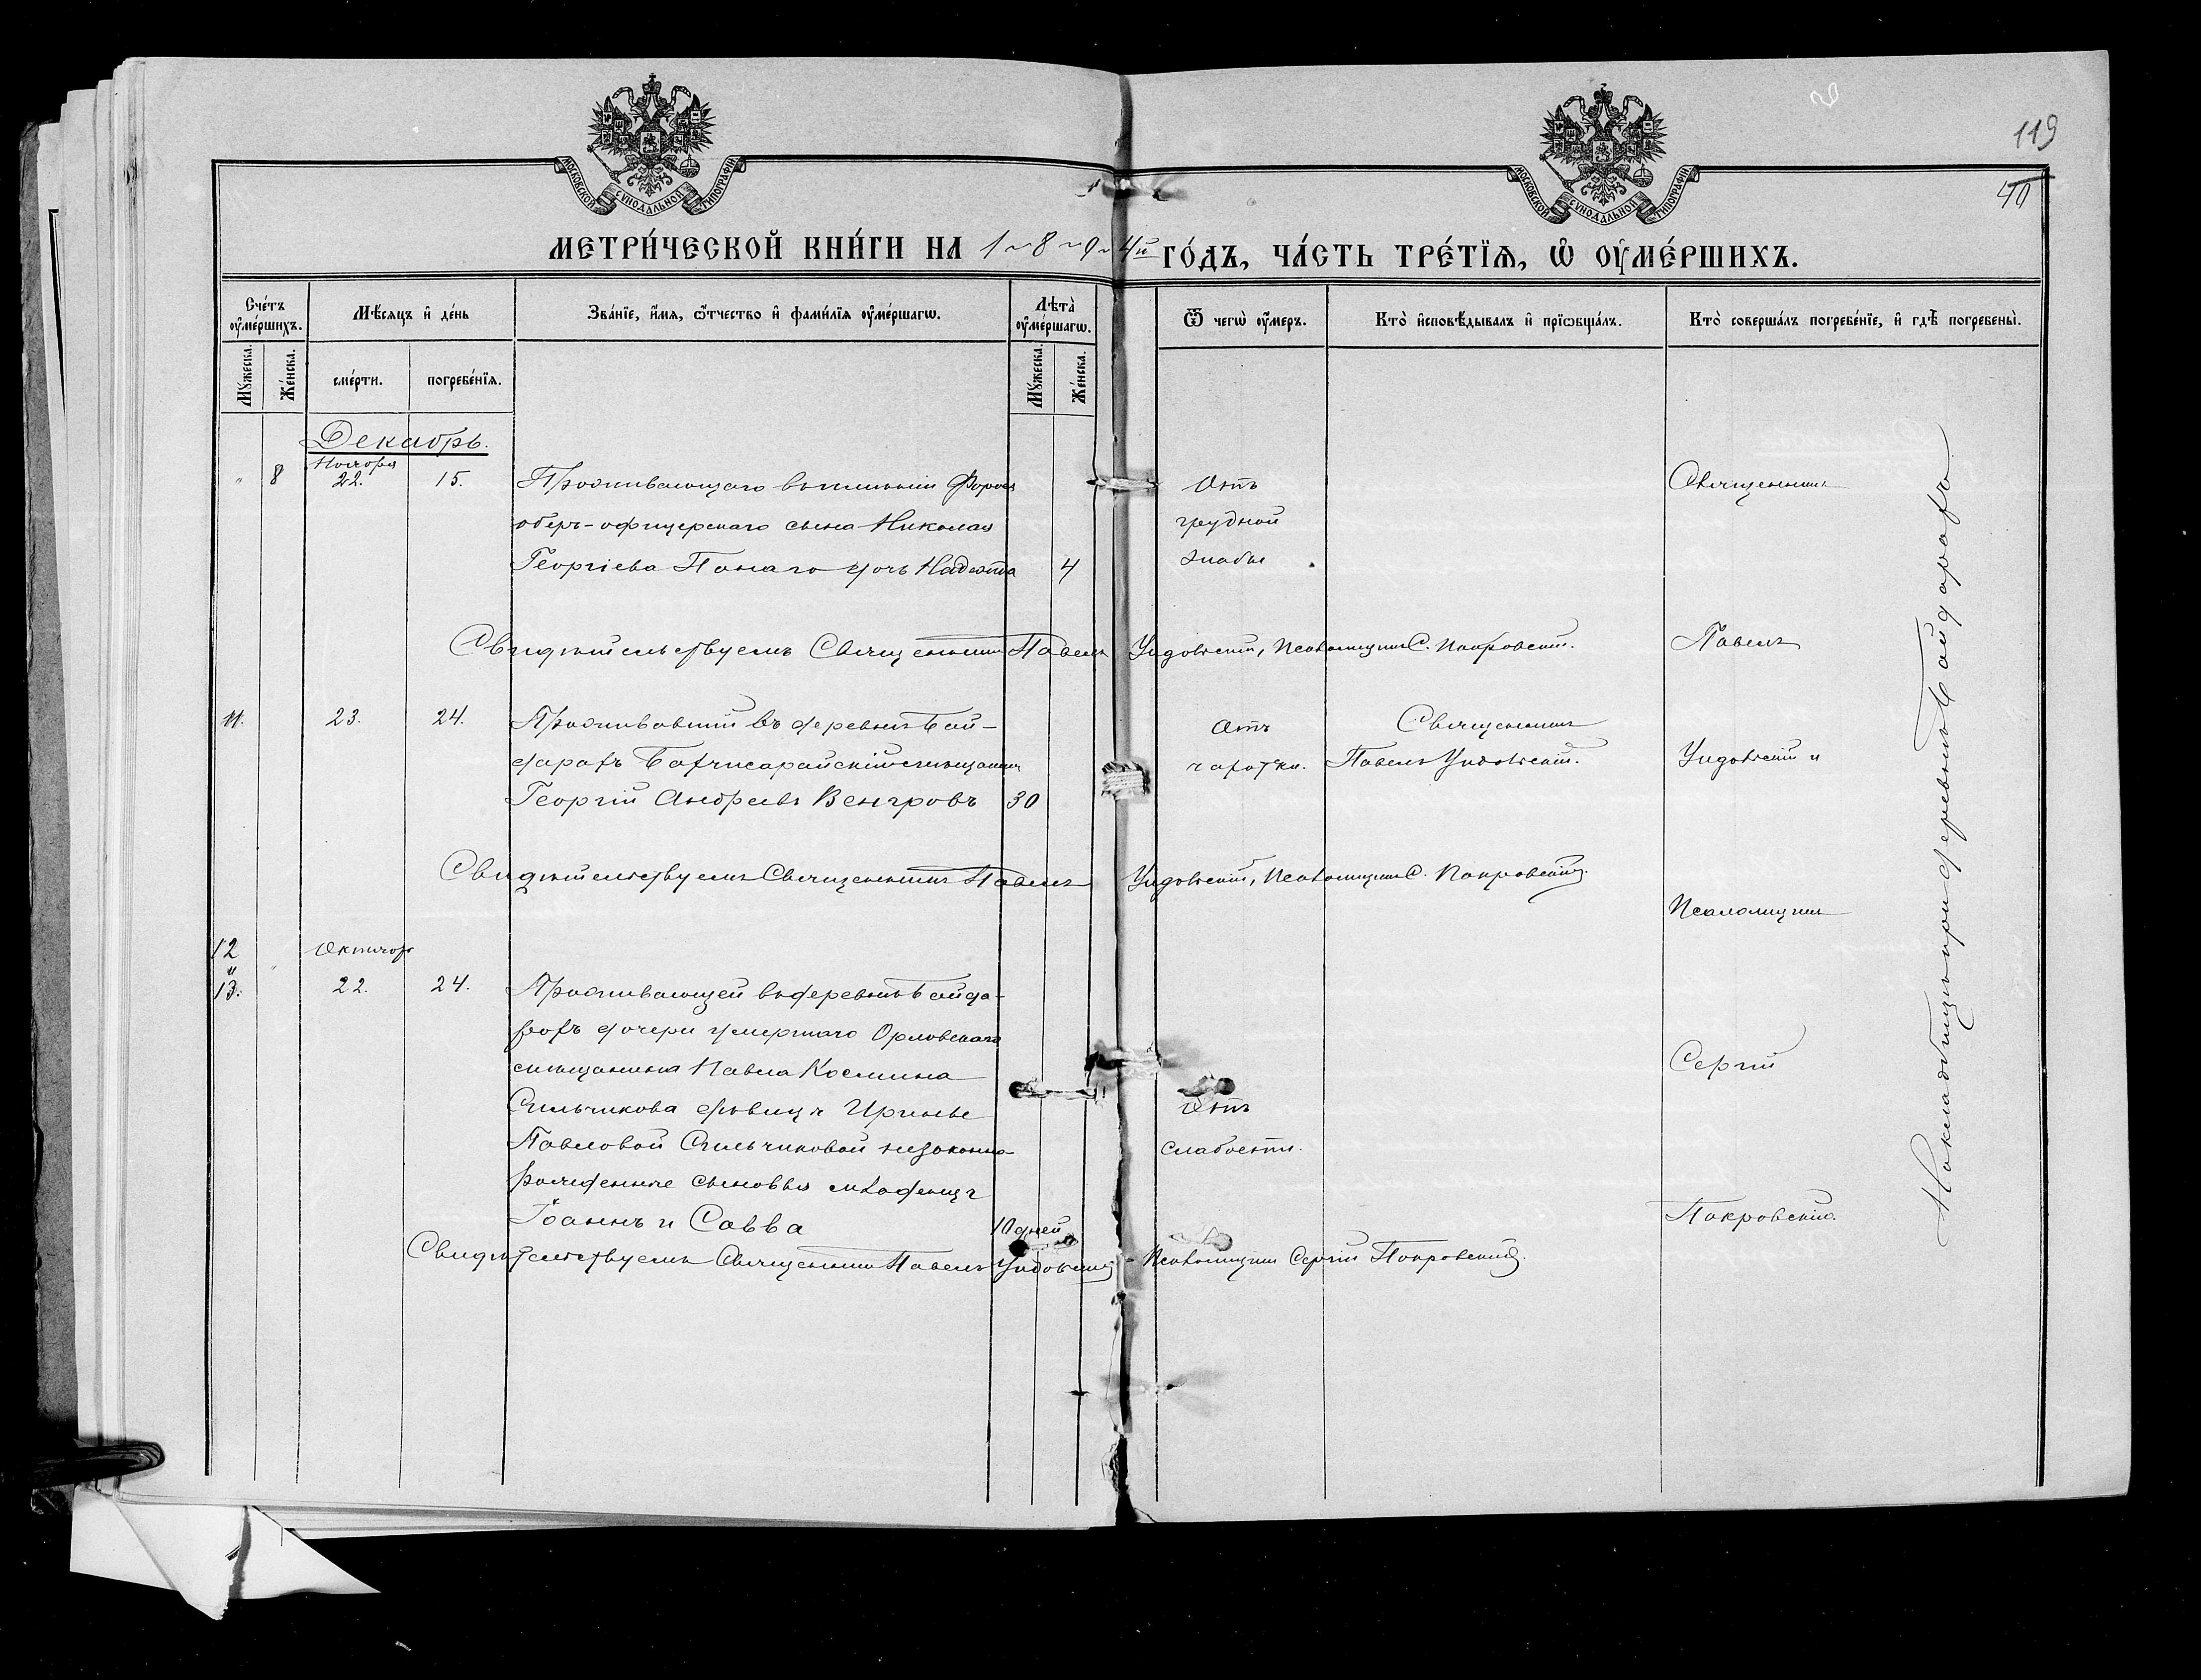 119
40
МОСКОВСКОЙ СУНОДАЛЬНОЙ ТИПОГРАФІИ
МОСКОВСКОЙ СУНОДАЛЬНОЙ ТИПОГРАФІИ
МЕТРИ́ЧЕСКОЙ КНИ́ГИ НА 1894й ГО́ДЪ, ЧА́СТЬ ТРЕ́ТЇѦ, Ѡ҆ ОУ҆МЕ́РШИХЪ.
Сче́тъ оу҆ме́ршихъ.
Мꙋ́жеска.
Же́нска.
Мѣ́сѧцъ и҆ де́нь
сме́рти.
погребе́нїѧ.
Зва́нїе, и҆́мѧ, ѻ҆́тчество и҆ фами́лїѧ оу҆ме́ршагѡ.
Лѣ́та̀ оу҆ме́ршагѡ.
Мꙋ́жеска.
Же́нска.
Ѿ чегѡ̀ оу҆́меръ.
Кто̀ и҆сповѣ́дывалъ и҆ прїѡбща́лъ.
Кто̀ соверша́лъ погребе́нїе, и҆ гдѣ̀ погребены̀.
Декабрь.
Ноября
" 8 22. 15. Проживающаго въ имѣніи Форосъ
оберъ-офицерскаго сына Николая
Георгіева дочь Надежда 4
Отъ
грудной
жабы
Священникъ
Свидѣтельствуемъ Священникъ Павелъ Ундовскій, Псаломщикъ С. Покровскій.
Павелъ
11. 23. 24. Проживавшій въ деревнѣ Бай-
дарахъ Бахчисарайскій мѣщанинъ
Георгій Андреевъ Венгровъ 30
Отъ
чахотки.
Священникъ
Павелъ Ундовскій.
Ундовскій и
Свидѣтельствуемъ Священникъ Павелъ Ундовскій, Псаломщикъ С. Покровскій.
Псаломщикъ
12 Октября
"
13. 22. 24. Проживающей въ деревнѣ Байда-
рахъ дочери умершаго Орловскаго
мѣщанина Павла Космина
дѣвицы Ирины
Павловой незаконно-
рожденные сыновья младенцы
Іоаннъ и Савва 10 дней
Отъ
слабости.
Сергій
Покровскій.
Свидѣтельствуемъ Священникъ Павелъ Ундовскій Псаломщикъ Сергій Покровскій.
На кладбищѣ при деревнѣ Байдарахъ.